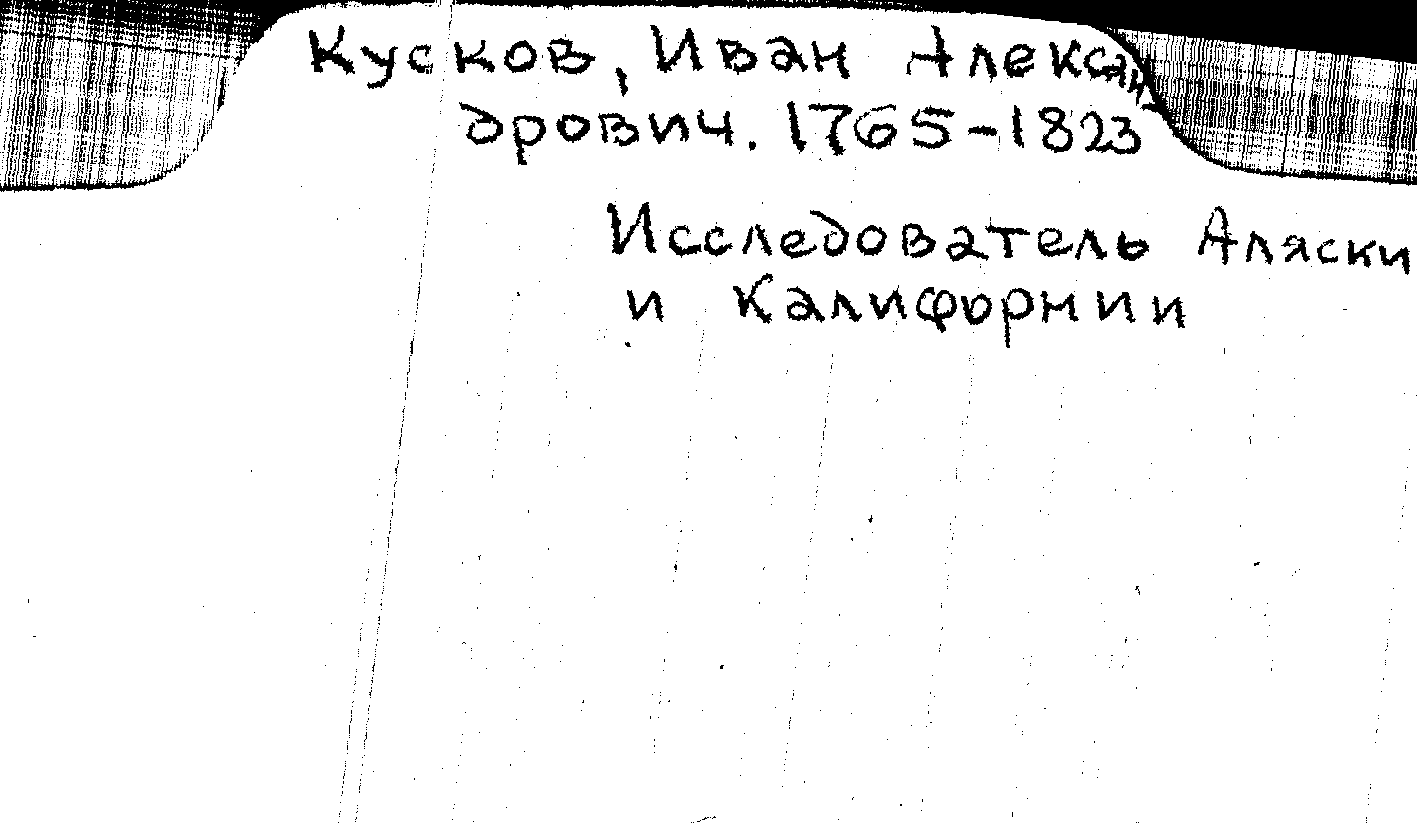 Кусков, Иван Алексан
дрович. 1765-1823
Исследователь Аляски
и Калифорнии